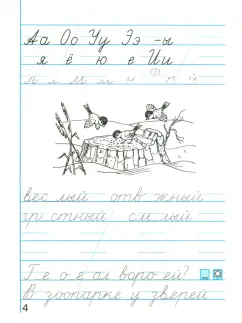 Аа Оо Уу Ээ -ы
я ё ю е Ии
вес лый отв жный
гр стный см лый
Г е о е ал воро ей?
В зоопарке у зверей
4